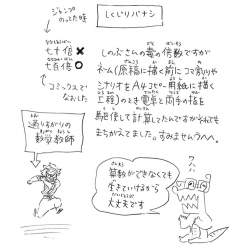 しくじりバナシ
ジャンプ
のってた時
七十倍 ✖
七百倍 〇
コミックスで
なおした
しのぶさんの毒の倍数ですが
ネーム(原稿に描く前にコマ割りや
シナリオをA4コピー用紙に描く
工程)のとき電卓と両手の指を
駆使して計算してたんですがそれでも
まちがえてました。すみませんうへへ。
通りすがりの
数学教師
算数ができなくても
生きていけるから
大丈夫です